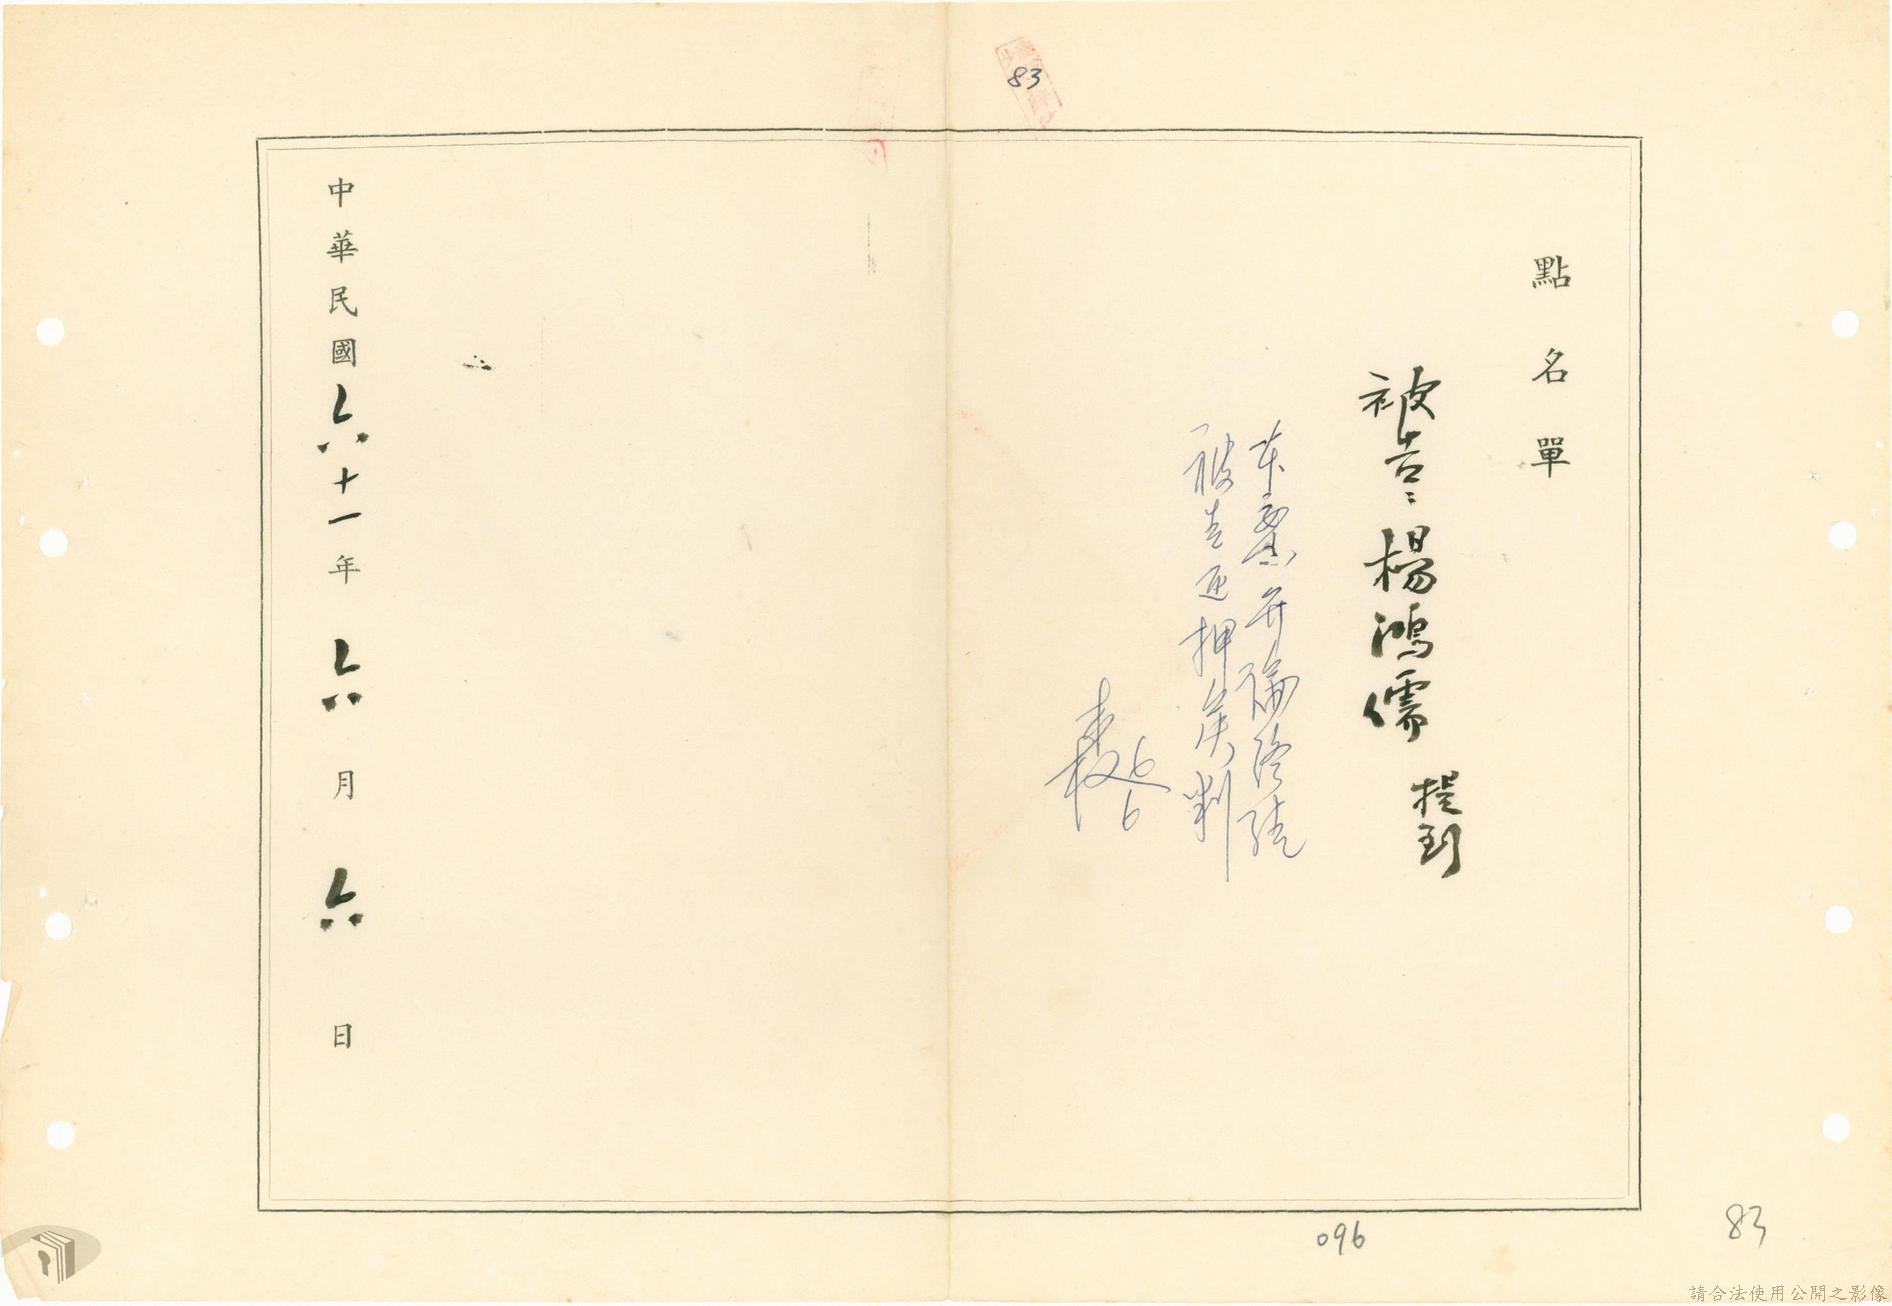 83
點名單
被告：楊鴻儒 提到
本案弁論終結
被告還押候判
6/6
中華民國六十一年六月六日
096
83
請合法使用公開之影像